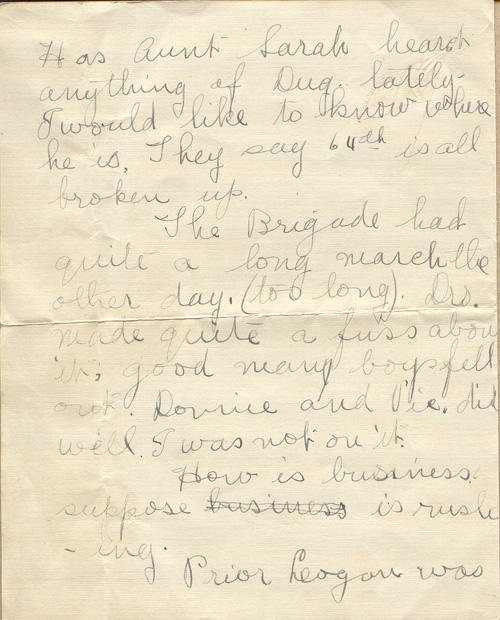 Has Aunt Sarah heard
anything of Dug. lately.
I would like to know where
he is. They say 64th is all
broken up.
The Brigade had
quite a long march the
other day. (too long). Drs.
made quite a fuss abou
it; good many boys fell
out. Donnie and Pie. did
well. I was not on it.
How is business.
suppose business is rush
-ing.
Prior Leogan was